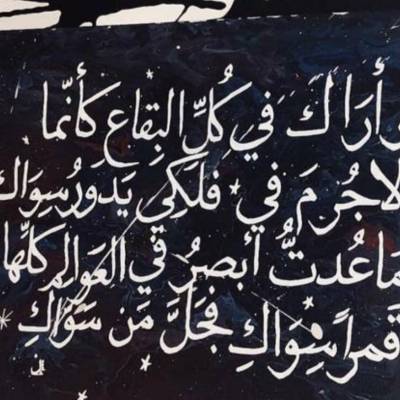 وأرَاكَ في كُلِّ البِقاعِ كَأنّما
لاجُرمَ في فلَكِي يَدورُ سِوَاكِ
مَاعُدتُّ أُبصرُ في العَوالمِ كلِّها
قمراً سِوَاكِ فجَلَّ مَن سَوَّاكِ